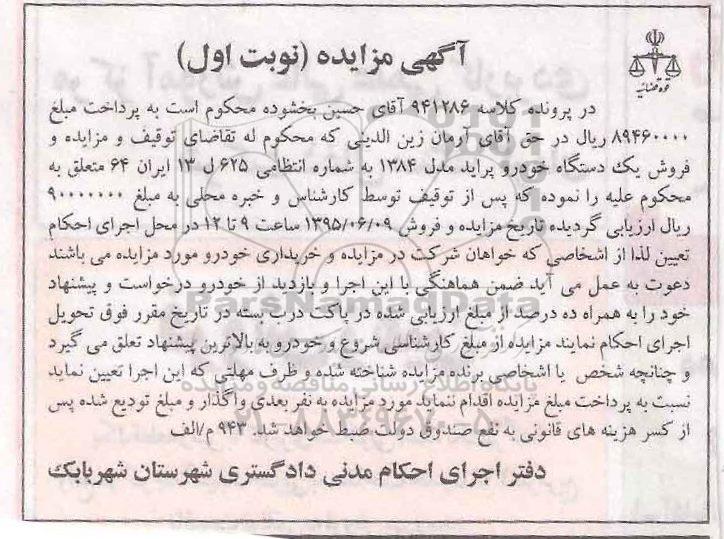 قوه قضائیه
آگهی مزایده (نوبت اول)
در پرونده کلاسه ۹۴۱۲۸۶ آقای حسین بخشوده محکوم است به پرداخت مبلغ
۸۹۴۶۰۰۰۰ ریال در حق آقای آرمان زین الدینی که محکوم له تقاضای توقیف و مزایده و
فروش یک دستگاه خودرو پراید مدل ۱۳۸۴ به شماره انتظامی ۶۲۵ ل ۱۳ ایران ۶۴ متعلق به
محکوم علیه را نموده که پس از توقیف توسط کارشناس و خبره محلی به مبلغ ۹۰۰۰۰۰۰۰
ریال ارزیابی گردیده تاریخ مزایده و فروش ۱۳۹۵/۰۶/۰۹ ساعت ۹ تا ۱۲ در محل اجرای احکام
تعیین لذا از اشخاصی که خواهان شرکت در مزایده و خریداری خودرو مورد مزایده می باشند
دعوت به عمل می آید ضمن هماهنگی با این اجرا و بازدید از خودرو درخواست و پیشنهاد
خود را به همراه ده درصد از مبلغ ارزیابی شده در پاکت درب بسته در تاریخ مقرر فوق تحویل
اجرای احکام نمایند مزایده از مبلغ کارشناسی شروع و خودرو به بالاترین پیشنهاد تعلق می گیرد
و چنانچه شخص یا اشخاصی برنده مزایده شناخته شده و ظرف مهلتی که این اجرا تعیین نماید
نسبت به پرداخت مبلغ مزایده اقدام ننماید مورد مزایده به نفر بعدی واگذار و مبلغ تودیع شده پس
از کسر هزینه های قانونی به نفع صندوق دولت ضبط خواهد شد. ۹۴۳ م/الف
دفتر اجرای احکام مدنی دادگستری شهرستان شهربابک
ParsNamadData
پایگاه اطلاع رسانی مناقصه و مزایده